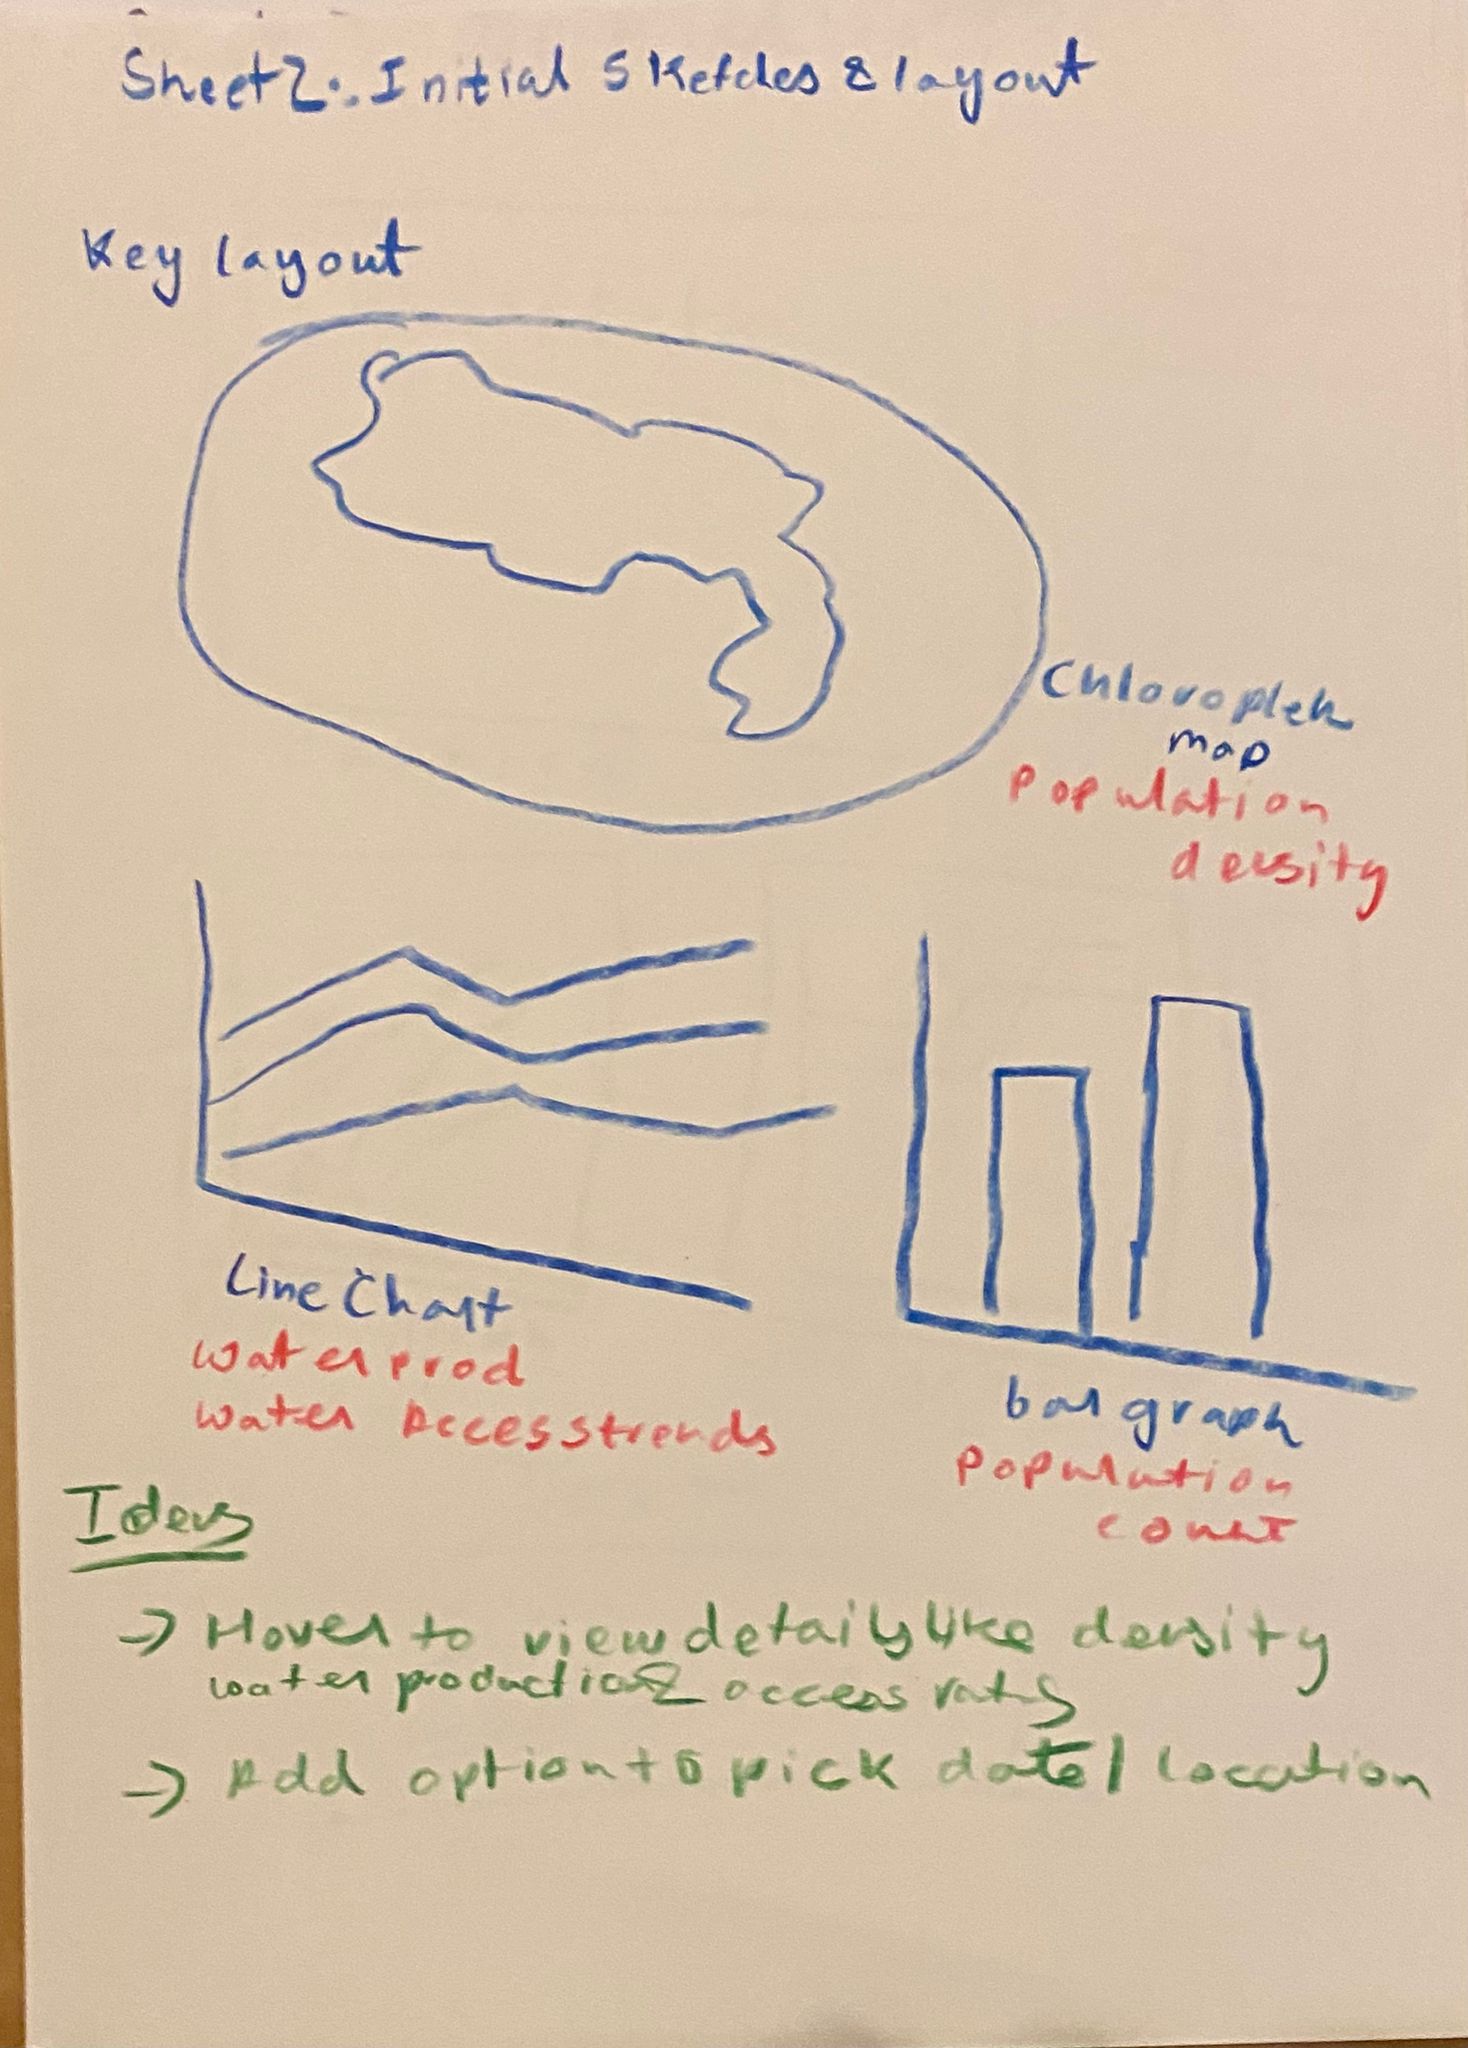 Sheet 2: Initial Sketches & layout
Key layout
Chloropleh
map
Population
density
Line Chart
water prod
water Access trends
bar graph
Population
count
Ideas
→ Hover to view details like density
water production & access rates
→ Add option to pick date / location